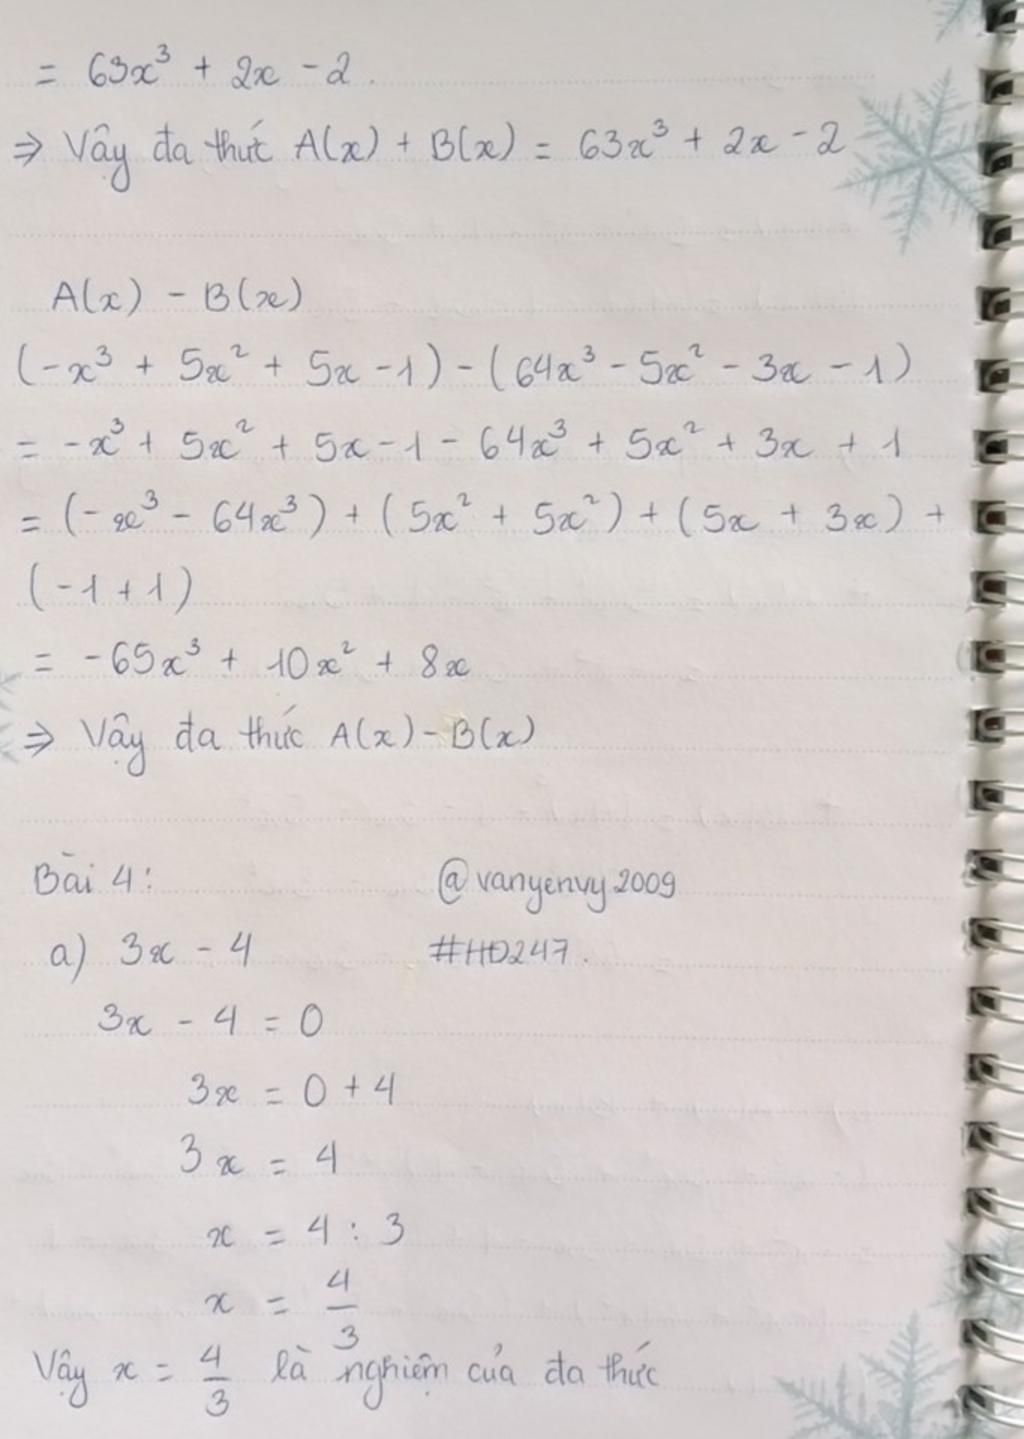 = 63x³ + 2x - 2.
⇒ Vậy đa thức A(x) + B(x) = 63x³ + 2x - 2
A(x) - B(x)
(-x³ + 5x² + 5x - 1) - (64x³ - 5x² - 3x - 1)
= -x³ + 5x² + 5x - 1 - 64x³ + 5x² + 3x + 1
= (-x³ - 64x³) + (5x² + 5x²) + (5x + 3x) +
(-1 + 1)
= -65x³ + 10x² + 8x
⇒ Vậy đa thức A(x) - B(x)
Bài 4: @vanyenvy2009
a) 3x - 4 #HD247.
3x - 4 = 0
3x = 0 + 4
3x = 4
x = 4 : 3
x = 4/3
Vậy x = 4/3 là nghiệm của đa thức